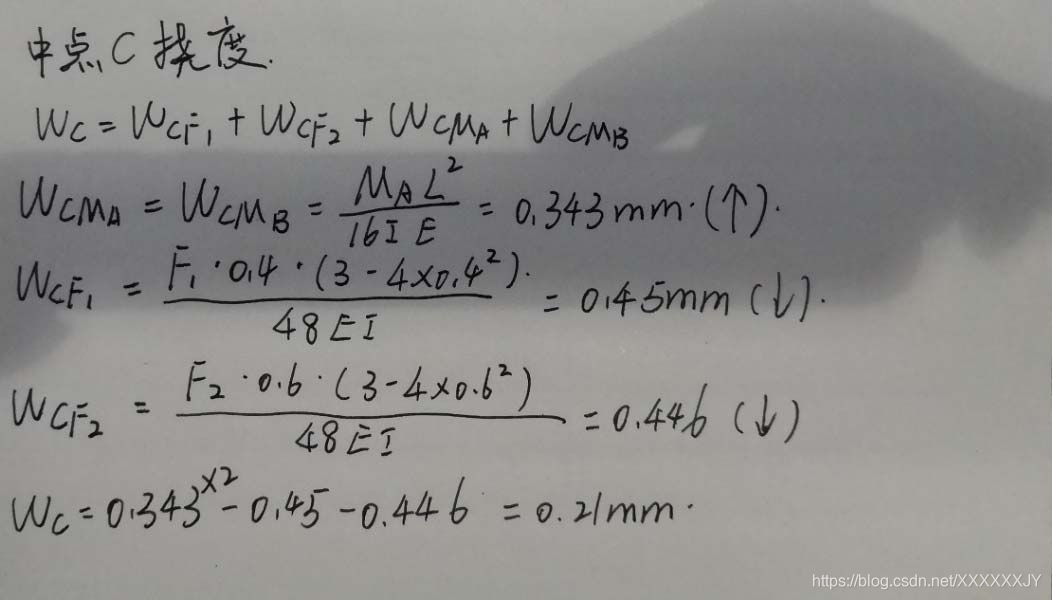 中点C挠度.
W_C = W_{CF_1} + W_{CF_2} + W_{CM_A} + W_{CM_B}
W_{CM_A} = W_{CM_B} = \frac{M_A L^2}{16IE} = 0.343mm.(↑).
W_{CF_1} = \frac{F_1·0.4·(3-4×0.4^2).}{48EI} = 0.45mm(↓).
W_{CF_2} = \frac{F_2·0.6·(3-4×0.6^2)}{48EI} = 0.446(↓)
W_C = 0.343^{×2} - 0.45 - 0.446 = 0.21mm.
https://blog.csdn.net/XXXXXXJY